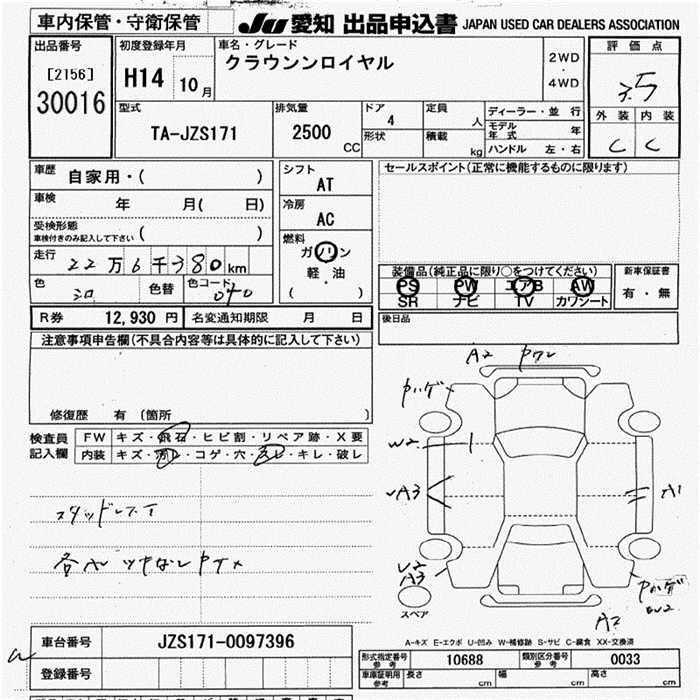 車内保管・守衛保管
JU 愛知 出品申込書 JAPAN USED CAR DEALERS ASSOCIATION
出品番号
[2156]
30016
初度登録年月
H14 10月
車名・グレード
クラウンンロイヤル
2WD
・
4WD
評価点
3.5
外装 内装
C C
型式
TA-JZS171
排気量
2500 CC
ドア
4
形状
定員
人
積載
kg
ディーラー・並 行
モデル年式 年
ハンドル 左・右
車歴 自家用・( )
車検 年 月( 日)
受検形態
車検付きのみ記入して下さい ( )
走行 22万6千380km
色 シロ 色替 色コード 040
シフト
AT
冷房
AC
燃料
ガソリン
軽・油
( )
セールスポイント(正常に機能するものに限ります)
装備品(純正品に限り○をつけてください)
PS PW エアB AW
SR ナビ TV カワシート
新車保証書
有・無
後日品
R券 12,930 円 名変通知期限 月 日
注意事項申告欄(不具合内容等は具体的に記入して下さい)
修復歴 有(箇所 )
検査員記入欄
FW キズ・飛石・ヒビ割・リペア跡・X要
内装 キズ・汚レ・コゲ・穴・スレ・キレ・破レ
スタッドレス
A2
W2
A3
A1
A3
A2
スペア
A-キズ E-エクボ U-凹み W-補修跡 S-サビ C-腐食 XX-交換済
車台番号 JZS171-0097396
登録番号
形式指定番号 参考 10688 類別区分番号 参考 0033
車庫証明用 参考 長さ cm 幅 cm 高さ cm